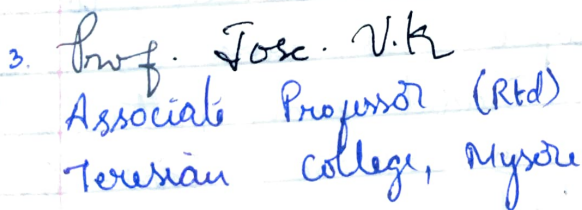 3. Prof. Jose. V.K
Associate Professor (Rtd)
Teresian College, Mysore